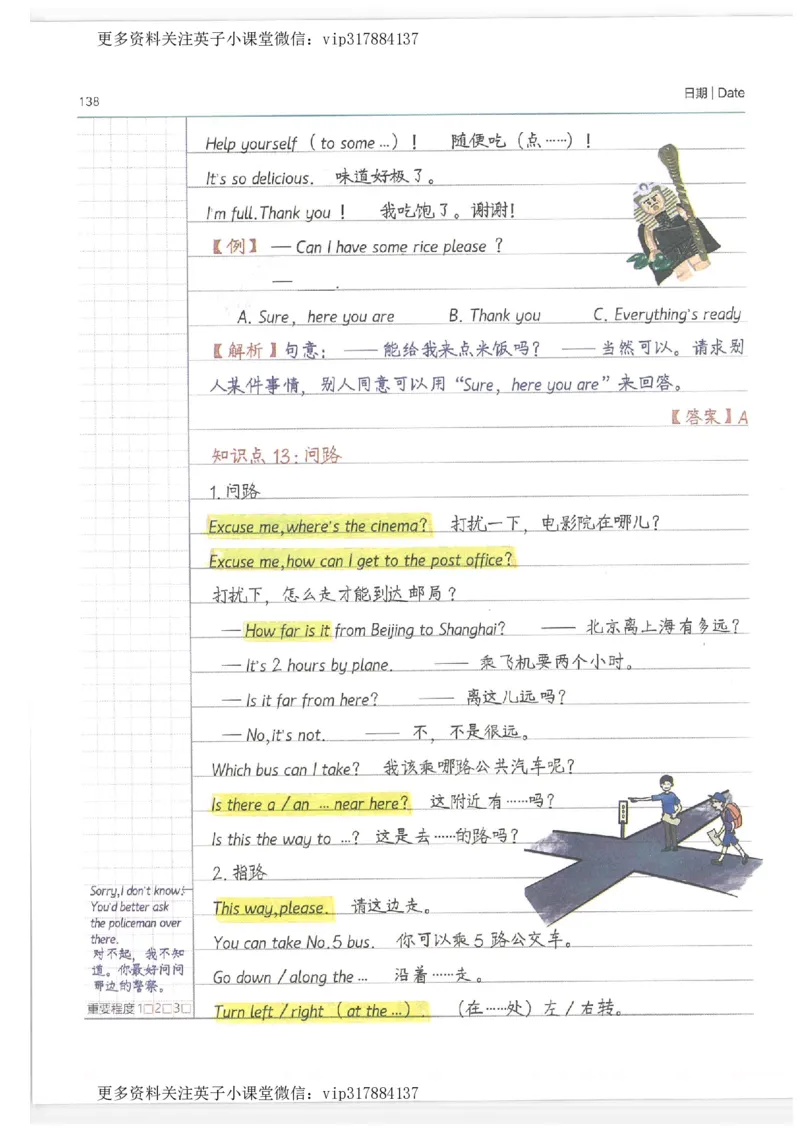 更多资料关注英子小课堂微信：vip317884137
138
日期 | Date
Help yourself（to some …）！ 随便吃（点……）！
It's so delicious. 味道好极了。
I'm full.Thank you！ 我吃饱了。谢谢！
【例】— Can I have some rice please？
— ______.
A. Sure，here you are B. Thank you C. Everything's ready
【解析】句意：——能给我来点米饭吗？ ——当然可以。请求别
人某件事情，别人同意可以用“Sure，here you are”来回答。
【答案】A
知识点 13：问路
1. 问路
Excuse me,where's the cinema? 打扰一下，电影院在哪儿？
Excuse me,how can I get to the post office?
打扰下，怎么走才能到达邮局？
— How far is it from Beijing to Shanghai? —— 北京离上海有多远？
— It's 2 hours by plane. —— 乘飞机要两个小时。
— Is it far from here? —— 离这儿远吗？
— No,it's not. —— 不，不是很远。
Which bus can I take? 我该乘哪路公共汽车呢？
Is there a / an … near here? 这附近有……吗？
Is this the way to …? 这是去……的路吗？
2. 指路
This way,please. 请这边走。
You can take No.5 bus. 你可以乘5路公交车。
Go down / along the … 沿着……走。
Turn left / right（at the …）. （在……处）左／右转。
Sorry,I don't know!
You'd better ask
the policeman over
there.
对不起，我不知
道。你最好问问
那边的警察。
重要程度 1□2□3□
更多资料关注英子小课堂微信：vip317884137